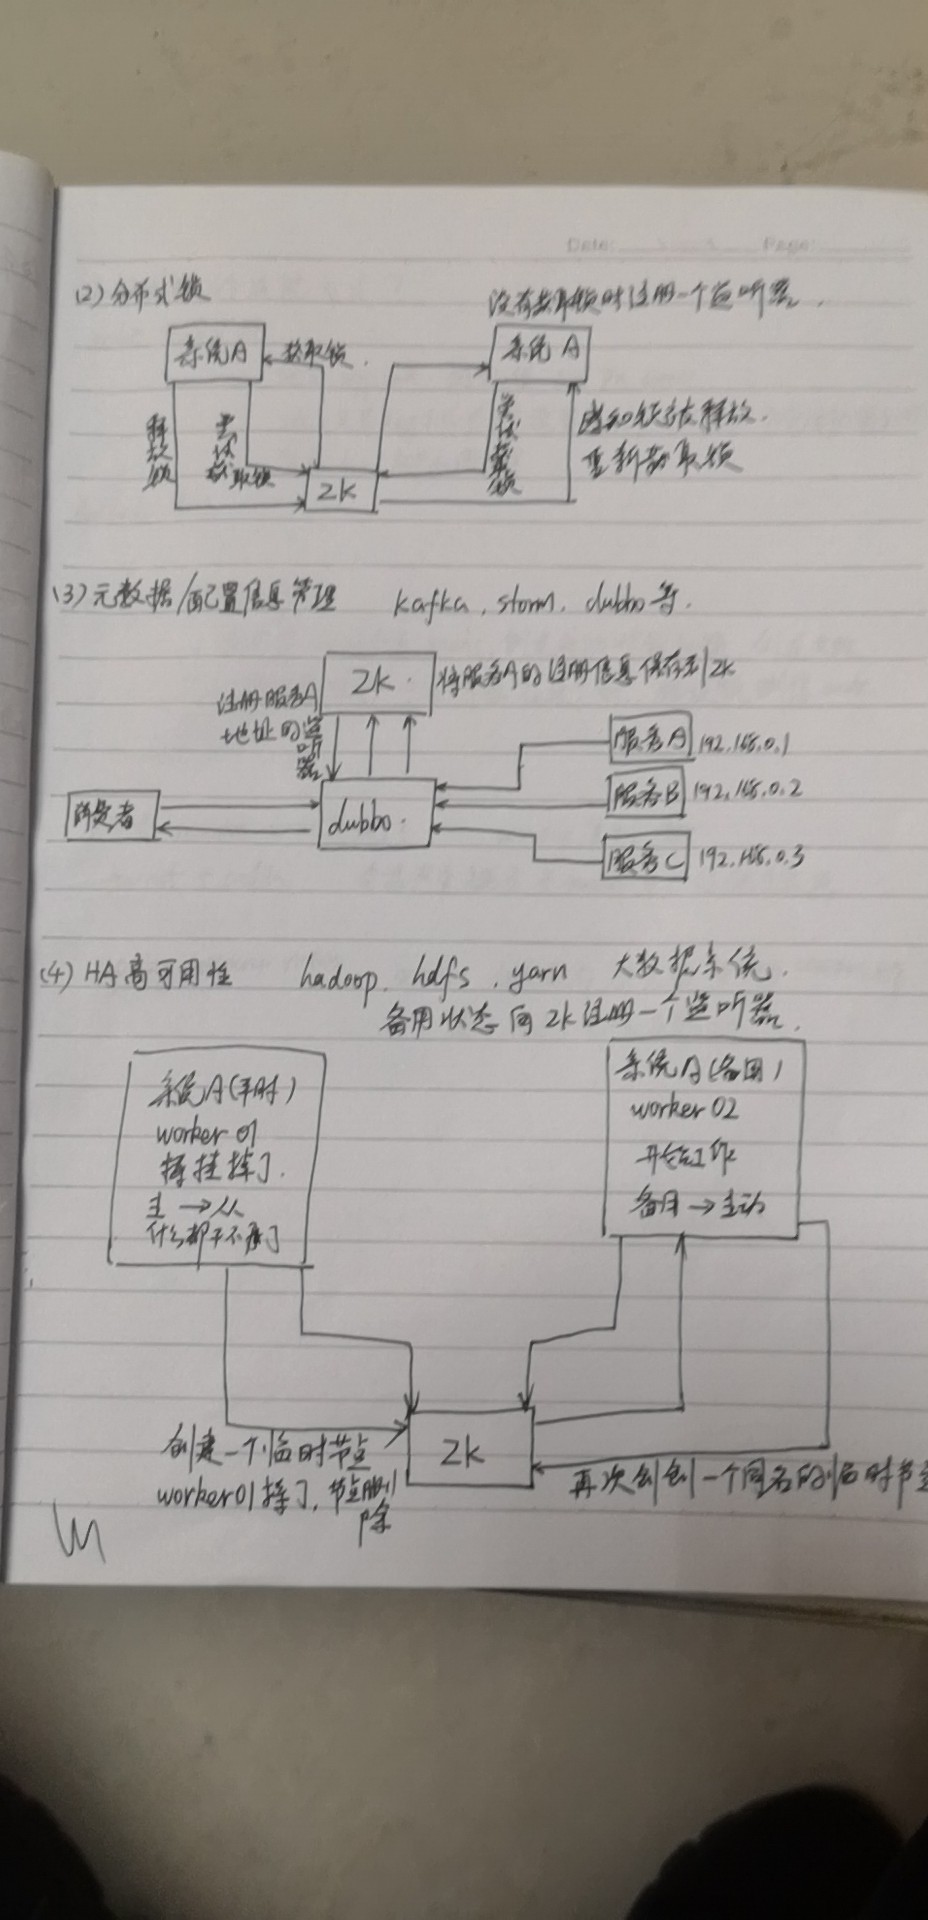 Date: Page:
(2) 分布式锁
没有获取锁时注册一个监听器.
系统A
获取锁.
系统A
释放锁
尝试获取锁
尝试获取锁
感知锁被释放.
重新获取锁
zk
(3) 元数据/配置信息管理 kafka, storm, dubbo等.
zk.
将服务A的注册信息保存到zk
注册服务A
地址的监听器
服务A 192.168.0.1
服务B 192.168.0.2
服务C 192.168.0.3
消费者
dubbo.
(4) HA高可用性 hadoop, hdfs, yarn 大数据系统.
备用状态向zk注册一个监听器.
系统A(平时)
worker 01
挂掉了.
主 → 从
什么都干不了
系统A(备用)
worker 02
开始工作
备用 → 主动
创建一个临时节点
worker01挂了, 节点删除
zk
再次创建一个同名的临时节点